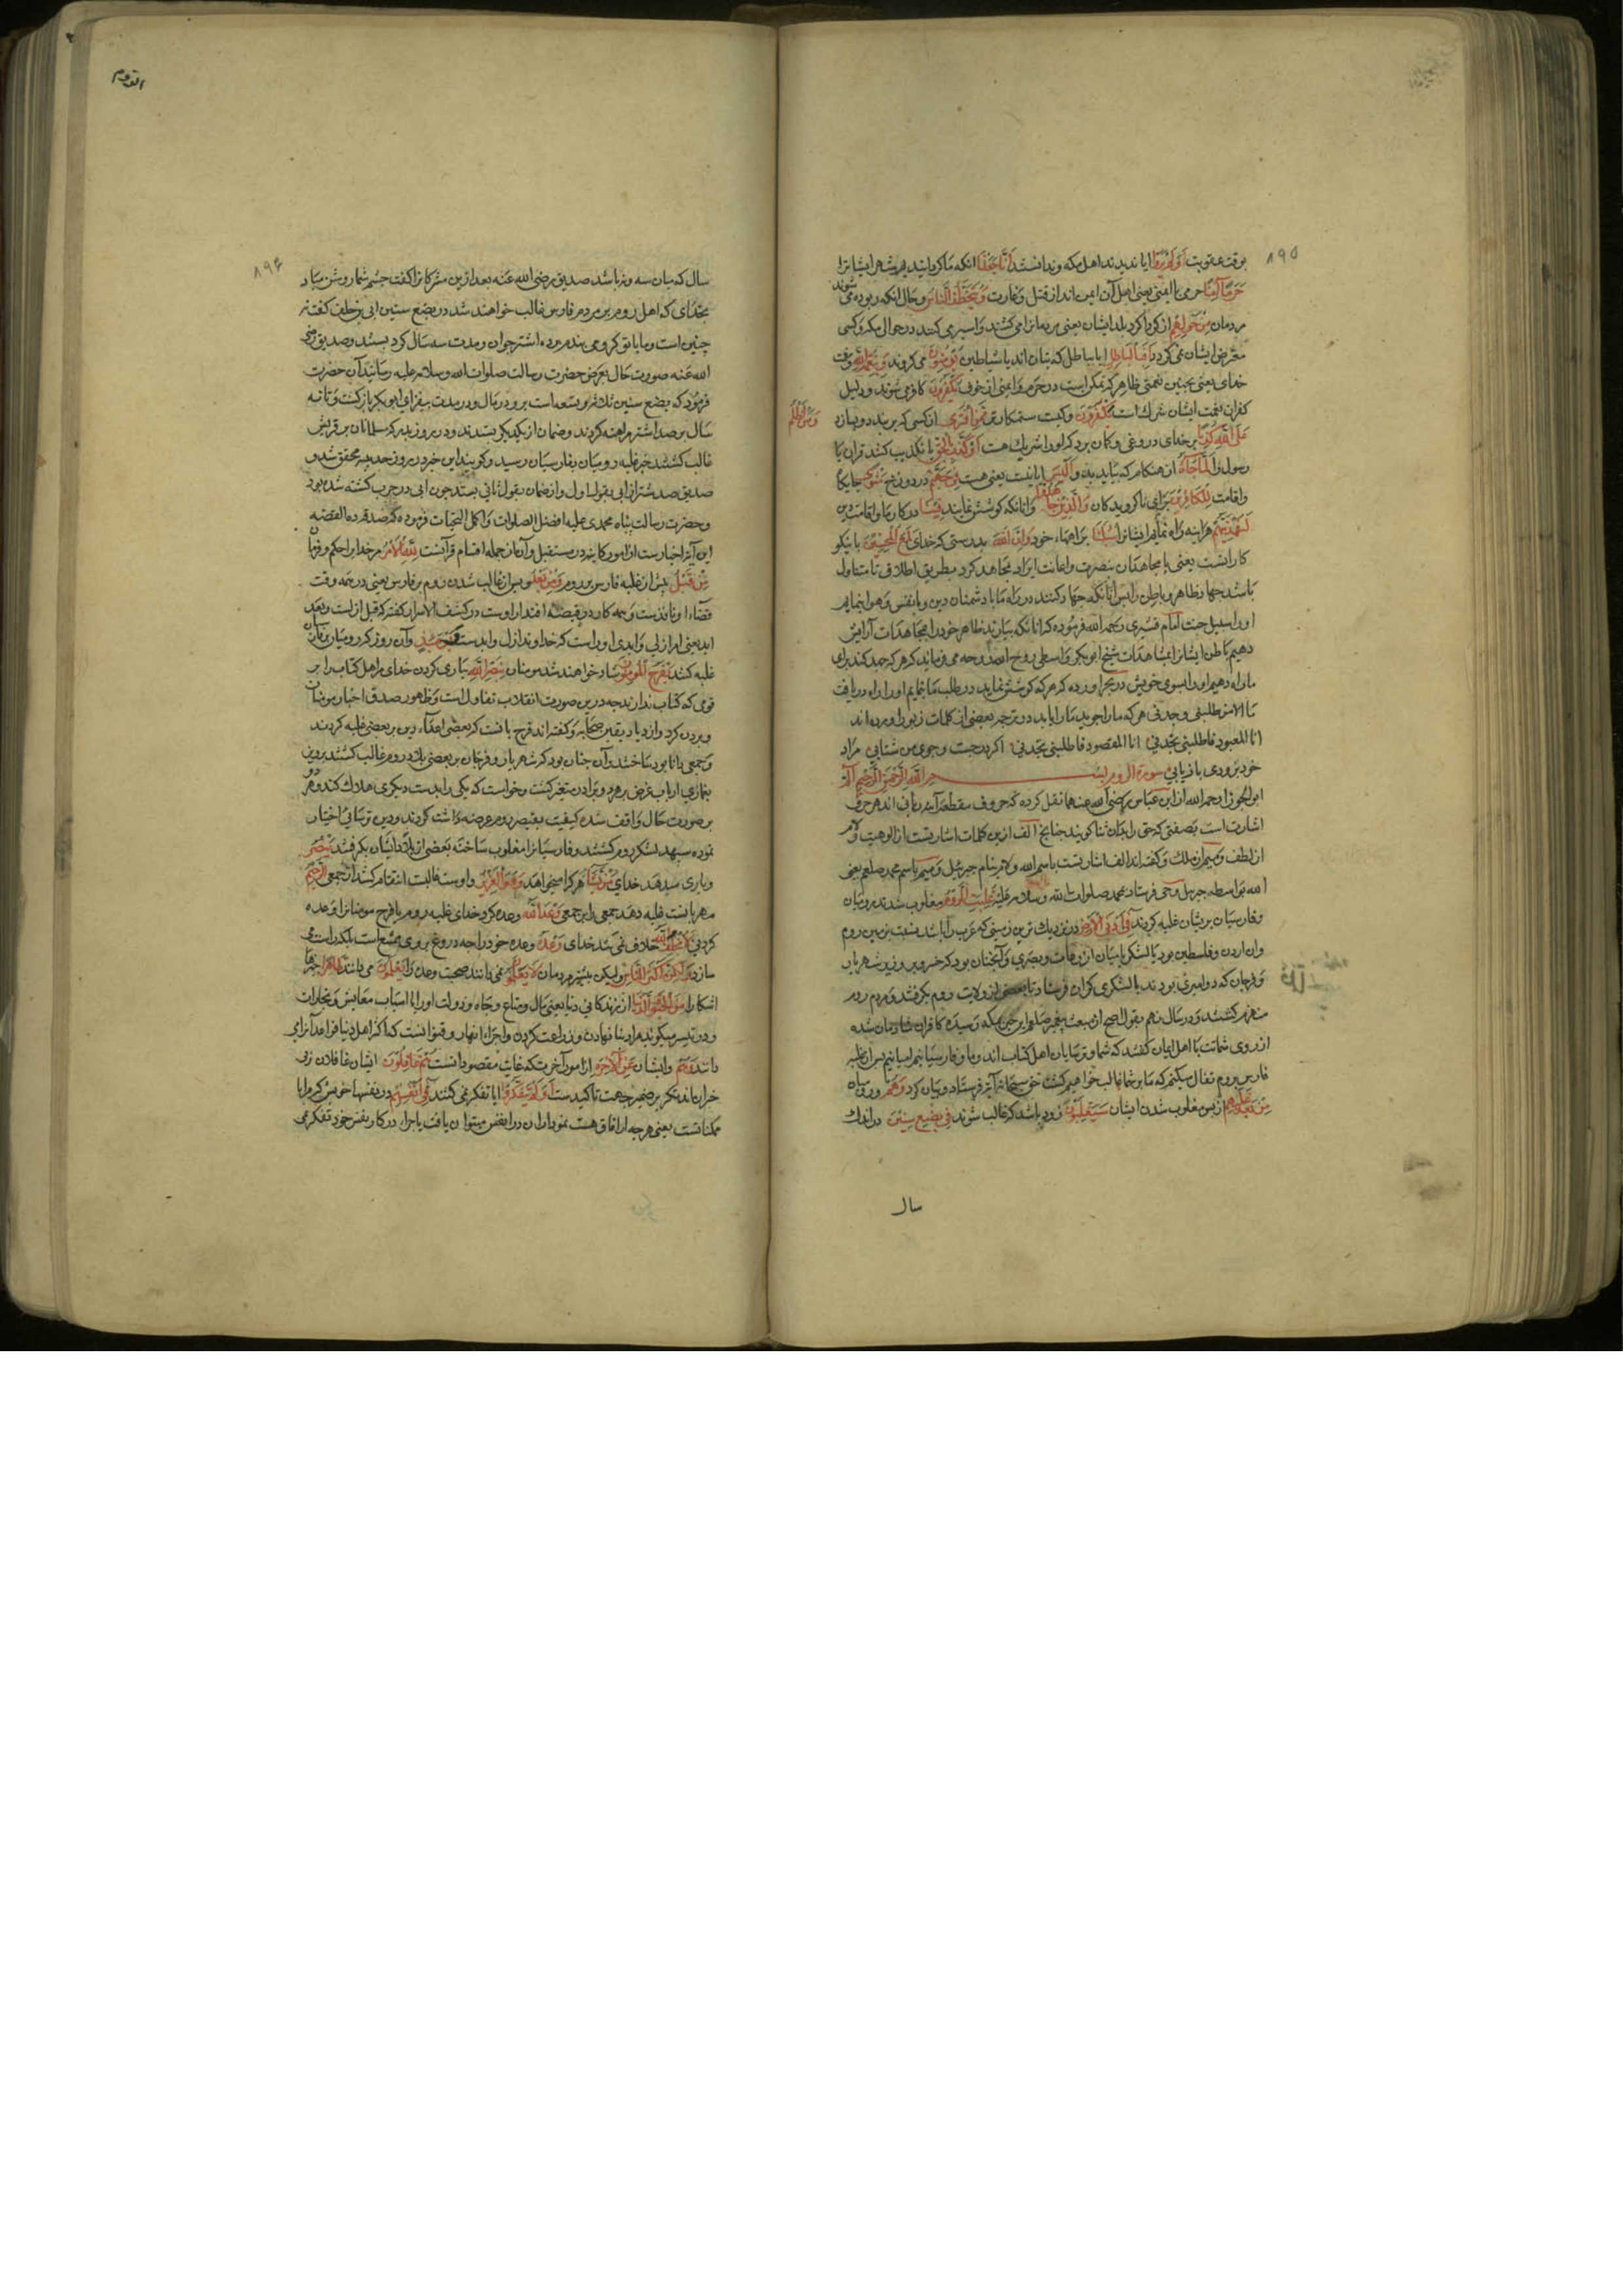 ۸۹۵
بوقت عقوبت اَوَلَمْ يَرَوْا ايا نديدند اهل مكه وندانستند اَنَّا جَعَلْنَا انكه ما كردانيديم شهر ايشانرا
حَرَمًا آمِنًا حرمی با ايمنی يعنی اهل آن ايمن اند از قتل و غارت وَيُتَخَطَّفُ النَّاسُ وحال انكه ربوده می شوند
مردمان مِنْ حَوْلِهِمْ از كرداكرد بلد ايشان يعنی مردمانرا می كشند واسير می كنند در حوالی مكه وكسی
متعرض ايشان نمی كردد اَفَبِالْبَاطِلِ ايا بباطل كه بتان اند يا شياطين يُؤْمِنُونَ می كروند وَبِنِعْمَةِ اللّٰهِ وبنعمت
خدای يعنی بچنين نعمتی ظاهر كه تمكن است در حرم وايمنی از خوف يَكْفُرُونَ كافر می شوند ودليل
كفران نعمت ايشان شرك است يَكْفُرُونَ وكيست ستمكارتر مِمَّنِ افْتَرٰى از كسی كه بربندد وبسازد
وَمَنْ اَظْلَمُ
عَلَى اللّٰهِ كَذِبًا بر خدای دروغی وكمان برد كه اورا شريك هست اَوْ كَذَّبَ بِالْحَقِّ يا تكذيب كند قران يا
رسول را لَمَّا جَاءَهُ ان هنكام كه بيايد بدو اَلَيْسَ ايا نيست يعنی هست فِي جَهَنَّمَ در دوزخ مَثْوًى جايكاه
واقامت لِلْكَافِرِينَ برای ناكرويدكان وَالَّذِينَ جَاهَدُوا وانانكه كوشش نمايند فِينَا در كار ما واقامت دين
لَنَهْدِيَنَّهُمْ هراينه راه نمايم ايشانرا سُبُلَنَا براههاء خود وَاِنَّ اللّٰهَ وبدرستی كه خدای لَمَعَ الْمُحْسِنِينَ با نيكو
كارانست يعنی با مجاهدان بنصرت واعانت ايراد مجاهده كرد بطريق اطلاق تا متناول
باشد جهاد ظاهر وباطن را پس انانكه جهاد كنند در راه ما با دشمنان دين وبا نفس وهوا بنمايم
اورا سبيل جنت امام قشيری رحمه الله فرموده كه انانكه بيارند ظاهر خود را بمجاهدات آرايش
دهيم باطن ايشانرا بمشاهدات شيخ ابو بكر واسطی روح الله روحه می فرمايد كه هر كه جهد كند برای
ما راه دهيم اورا بسوی خويش در بحر اورده كه هر كه كوشش نمايد در طلب ما بنمايم اورا راه دريافت
ما الا من طلبنی وجدنی هر كه مارا جويد مارا يابد در ترجمه بعضی از كلمات زبور اورده اند
انا المعبود فاطلبنی تجدنی انا المقصود فاطلبنی تجدنی اكر در جست وجوی من شتابی مراد
خود بزودی بازيابی سورة الروم بسم الله الرحمن الرحيم الم
ابو الجوزا رحمه الله از ابن عباس رضی الله عنهما نقل كرده كه حروف مقطعه آيه ربانی اند هر حرف
اشارت است بصفتی كه حق را بدان ثنا كويند چنانچه الف ازين كلمات اشارتست از الوهيت ولام
از لطف وميم از ملك وكفته اند الف اشارتست باسم الله ولام بنام جبرئيل وميم باسم محمد صلعم يعنی
الله بواسطه جبرئيل وحی فرستاد بمحمد صلوات الله وسلامه عليه غُلِبَتِ الرُّومُ مغلوب شدند روميان
وفارسيان بريشان غلبه كردند فِي اَدْنَى الْاَرْضِ در نزديك ترين زمينی كه عرب را باشد نسبت بزمين روم
وان اردن وفلسطين بود يا لشكر يا ميان ازرعات وبصری وآنچنان بود كه خسرو پرويز شهريار
وفرخان كه دو امير وی بودند با لشكری كران فرستاد تا بعضی از ولايت روم بكرفتند ومردم روم
منهزم كشتند ودر سال نهم بقول اصح از مبعث پيغمبر صلعم اين خبر بمكه رسيده كافران شادمان شده
از روی شماتت با اهل ايمان كفتند كه شما وترسايان اهل كتاب اند وما وفارسيانيم اميانيم پس از غلبه
فارس بروم تفال ميكنيم كه ما بر شما غالب خواهيم كشت حق سبحانه آيه فرستاد وبيان كرد وَهُمْ وروميان
مِنْ بَعْدِ غَلَبِهِمْ از پس مغلوب شدن ايشان سَيَغْلِبُونَ زود باشد كه غالب شوند فِي بِضْعِ سِنِينَ در اندك
سال
الروم
۸۹۶
سال كه ميان سه ونه باشد صديق رضی الله عنه بعد ازين مشركانرا كفت چشم شما روشن مباد
بخدای كه اهل روم بر مردم فارس غالب خواهند شد در بضع سنين ابی بن خلف كفت نه
چنين است وبيا با تو كرو می بندم بر ده اشتر جوان ومدت سه سال كرو بستند وصديق رضی
الله عنه صورت حال بعرض حضرت رسالت صلوات الله وسلامه عليه رسانيد آن حضرت
فرمود كه بضع سنين ثلاثه وتسعه است برو در مال ودر مدت بيفزای ابو بكر بازكشت وتا نه
سال بر صد اشتر مراهنه كردند وضمان از يكديكر بستند ودر روز بدر كه مسلمانان بر قريش
غالب كشتند خبر غلبه روميان بفارسيان رسيد وكويند اين خبر در روز حديبيه محقق شد و
صديق صد شتر از ابی بقول اول واز ضمان بقول ثانی بستد چون ابی در حرب كشته شده بود
وحضرت رسالت پناه محمدی عليه افضل الصلوات واكمل التحيات فرمود كه صدقه ده القصه
اين آيه اخبارست از امور كاينه در مستقبل وآن از جمله اقسام قرآنست لِلّٰهِ الْاَمْرُ مر خدايراست حكم وفرمان
مِنْ قَبْلُ پيش از غلبه فارس بر روم وَمِنْ بَعْدُ وپس از غالب شدن روم بر فارس يعنی در همه وقت
قضاء او نافذست وهمه كار در قبضه اقتدار اوست در كشف الاسرار كفته كه قبل ازلست وبعد
ابد يعنی امر ازلی وابدی اوراست كه خداوند ازل وابدست وَيَوْمَئِذٍ وآن روز كه روميان برفارسيان
غلبه كنند يَفْرَحُ الْمُؤْمِنُونَ شاد خواهند شد مومنان بِنَصْرِ اللّٰهِ بياری كردن خدای مر اهل كتاب را بر
قومی كه كتاب ندارند چه درين صورت انقلاب تفاول است وظهور صدق اخبار مومنان
وبردن كرو وازدياد يقين صحابه وكفته اند فرح بانست كه بعضی اعداء دين بر بعضی غلبه كردند
وجمعی را نابود ساختند وآن چنان بود كه شهريار وفرخان بر بعضی بلاد روم غالب كشتند پرويز
بغمازی ارباب غرض بر هر دو برادر متغير كشت وخواست كه يكی را بدست ديكری هلاك كند وهر دو
بر صورت حال واقف شده كيفيت بقيصر روم عرضه داشت كردند ودين ترسائی اختيار
نموده سپهبد لشكر روم كشتند وفارسيانرا مغلوب ساخته بعضی از بلاد ايشان بكرفتند يَنْصُرُ
وياری ميدهد خدای مَنْ يَشَاءُ هر كرا ميخواهد وَهُوَ الْعَزِيزُ واوست غالب انتقام كشد از جمعی الرَّحِيمُ
مهربانست غلبه دهد جمعی را بر جمعی وَعْدَ اللّٰهِ وعده كرد خدای غلبه روم يا فرح مومنانرا وعده
كردنی لَا يُخْلِفُ اللّٰهُ خلاف نمی كند خدای وَعْدَهُ وعده خود را چه دروغ بروی ممتنع است بلكه راست می
سازد وَلٰكِنَّ اَكْثَرَ النَّاسِ وليكن بيشتر مردمان لَا يَعْلَمُونَ نمی دانند صحت وعده را يَعْلَمُونَ می دانند ظَاهِرًا چيزها
اشكارا مِنَ الْحَيٰوةِ الدُّنْيَا از زندكانی دنيا يعنی مال ومتاع وجاه ودولت اورا يا اسباب معايش وتجارات
ودر تيسير ميكويد مراد بنا نهادن وزراعت كردن واجراء انهار وقنوانست كه اكثر اهل دنيا قواعد آنرا می
دانند وَهُمْ وايشان عَنِ الْاٰخِرَةِ از امور آخرت كه غايت مقصود انست هُمْ غَافِلُونَ ايشان غافلان وبی
خبران اند تكرير ضمير جهت تاكيد ست اَوَلَمْ يَتَفَكَّرُوا ايا تفكر نمی كنند فِي اَنْفُسِهِمْ در نفسها خويش كه مراياء
ممكناتست يعنی هرچه در افاق هست نمودار ان در انفس ميتوان يافت يا چرا در كار نفس خود تفكر نمی